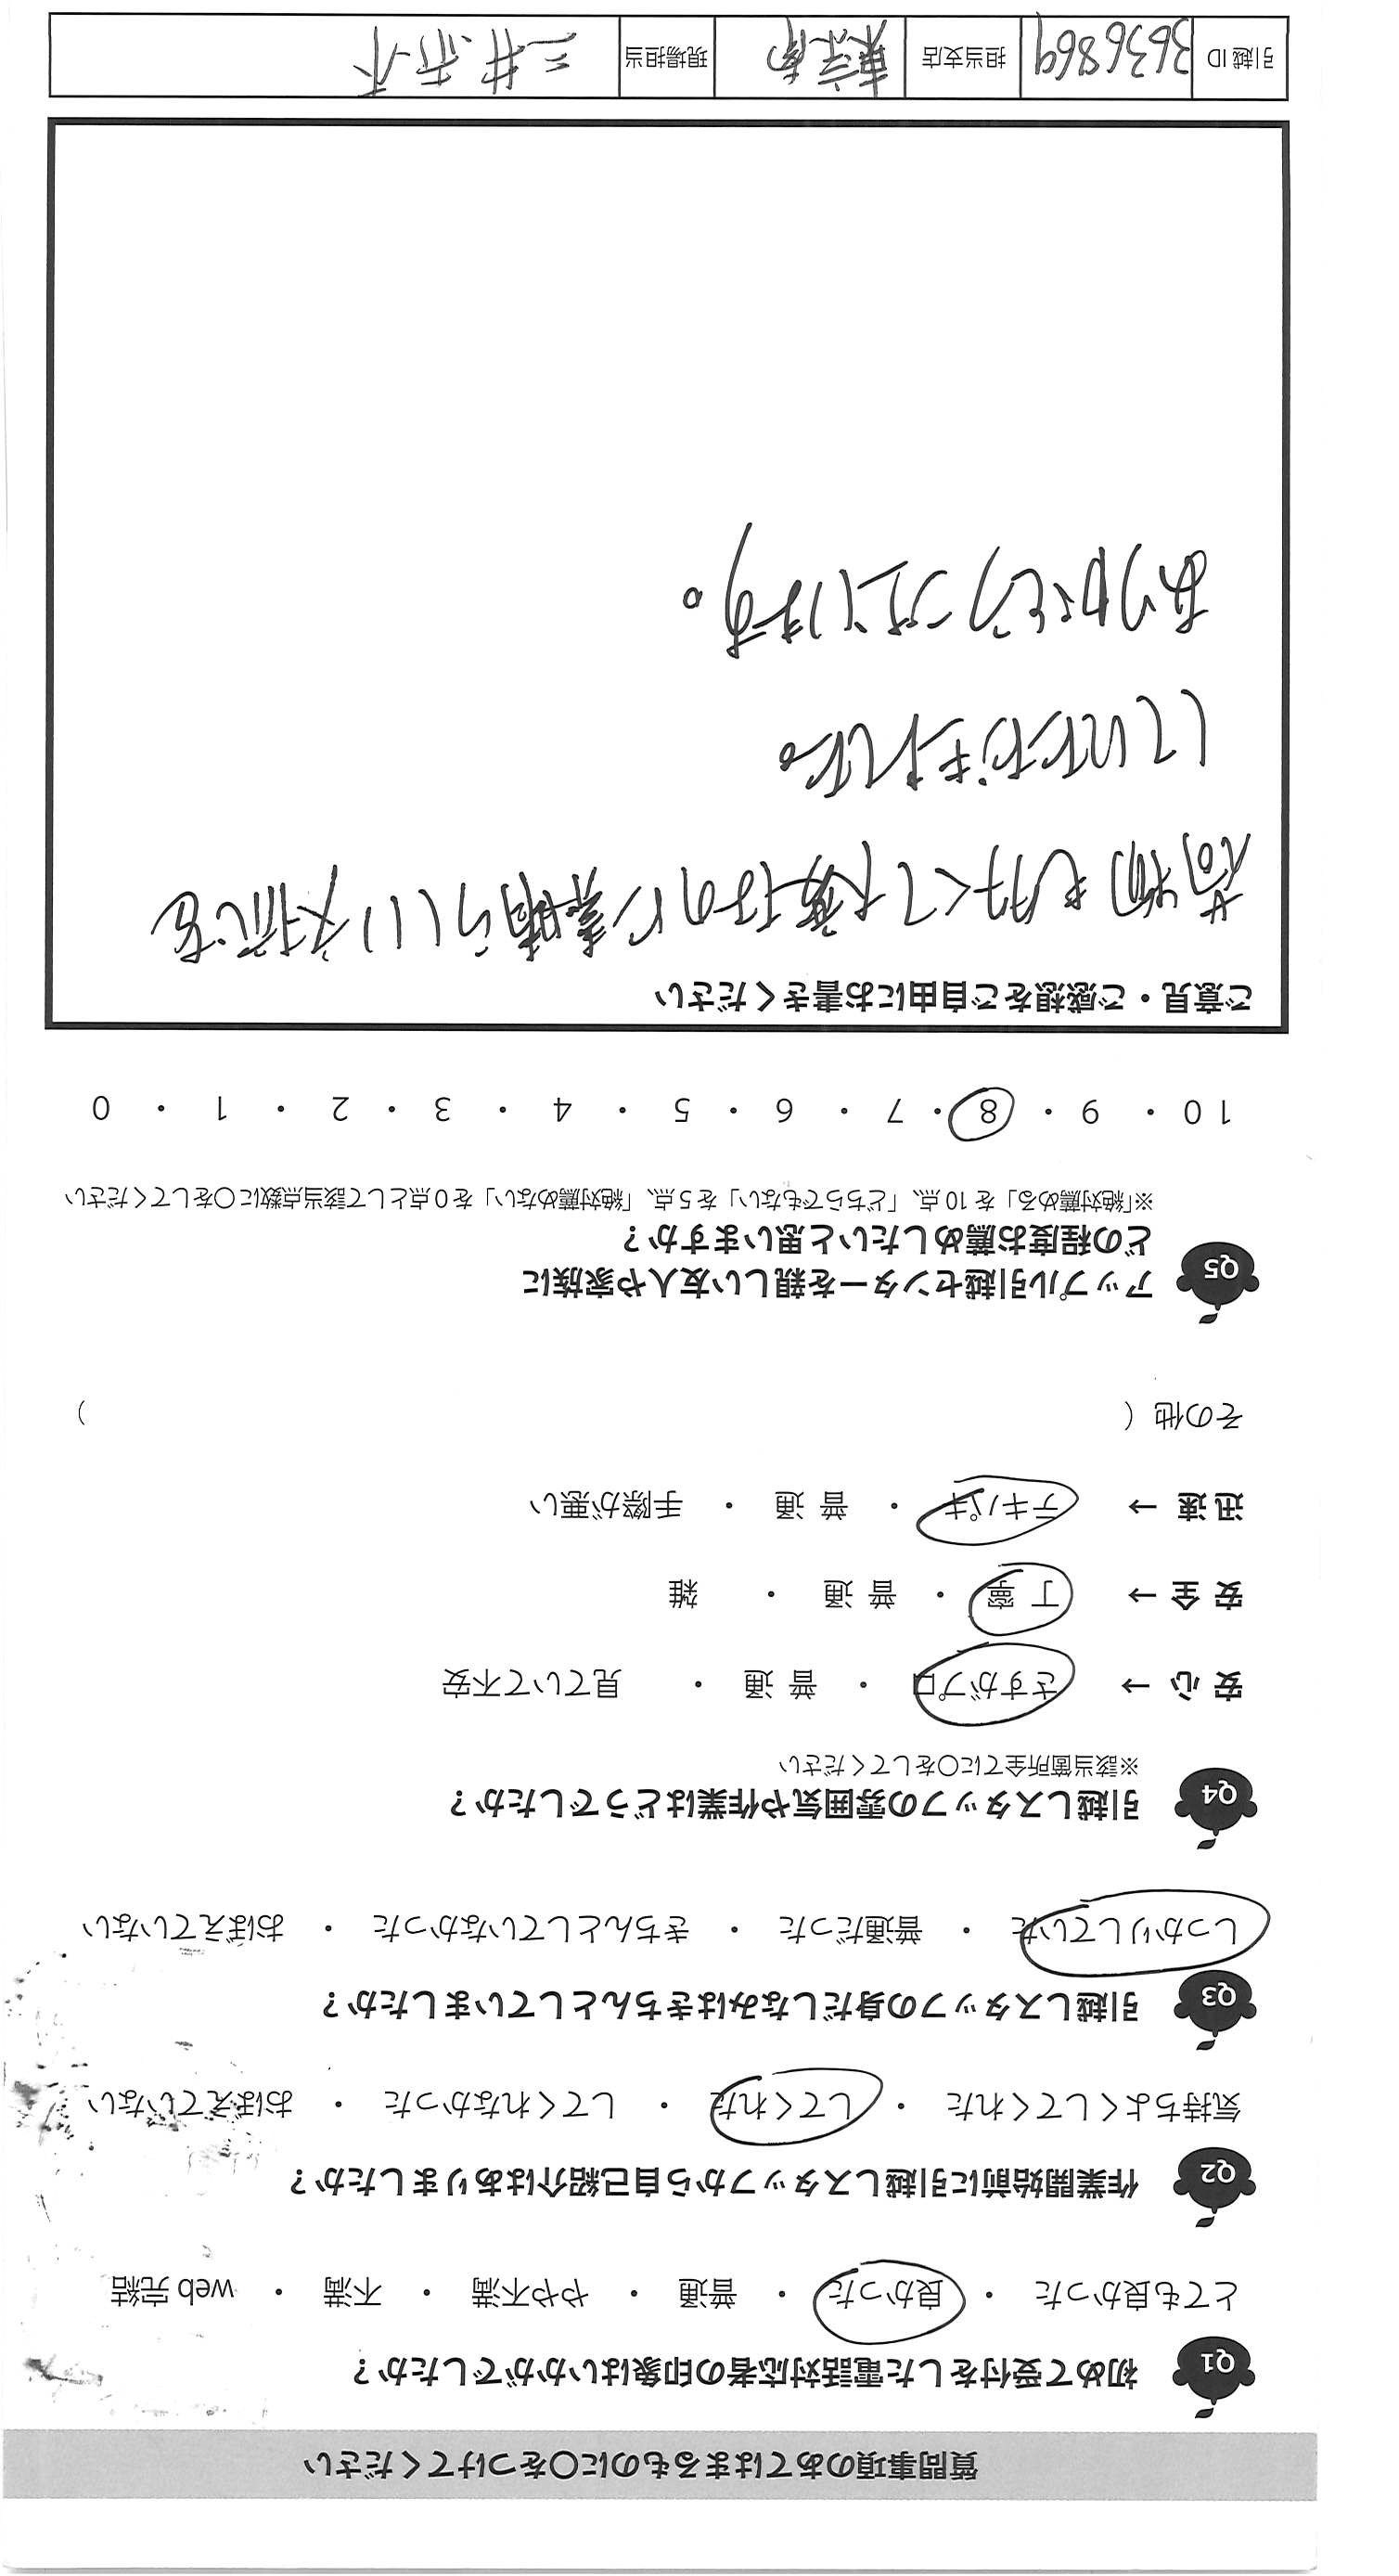 質問事項のあてはまるものに〇をつけてください
Q1 初めて受付をした電話対応者の印象はいかがでしたか？
とても良かった ・ 良かった ・ 普通 ・ やや不満 ・ 不満 ・ web 完結
Q2 作業開始前に引越しスタッフから自己紹介はありましたか？
気持ちよくしてくれた ・ してくれた ・ してくれなかった ・ おぼえていない
Q3 引越しスタッフの身だしなみはきちんとしていましたか？
しっかりしていた ・ 普通だった ・ きちんとしていなかった ・ おぼえていない
Q4 引越しスタッフの雰囲気や作業はどうでしたか？
※該当箇所全てに〇をしてください
安 心 → さすがプロ ・ 普 通 ・ 見ていて不安
安 全 → 丁 寧 ・ 普 通 ・ 雑
迅 速 → テキパキ ・ 普 通 ・ 手際が悪い
その他（ ）
Q5 アップル引越センターを親しい友人や家族に
どの程度お薦めしたいと思いますか？
※「絶対薦める」を 10 点、「どちらでもない」を 5 点、「絶対薦めない」を 0 点として該当点数に〇をしてください
10 ・ 9 ・ 8 ・ 7 ・ 6 ・ 5 ・ 4 ・ 3 ・ 2 ・ 1 ・ 0
ご意見・ご感想をご自由にお書きください
荷物も多くて大変なのに素晴らしい対応を
していただきました。
ありがとうございます。
引越 ID 3636869 担当支店 東京南 現場担当 三井